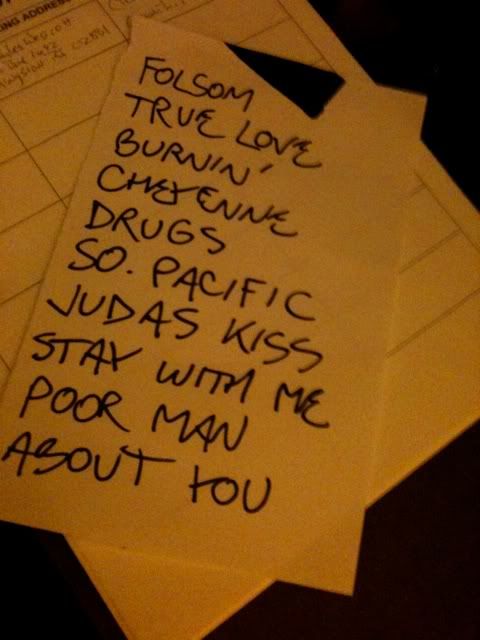 ING ADDRESS
FOLSOM
TRUE LOVE
BURNIN'
CHEYENNE
DRUGS
SO. PACIFIC
JUDAS KISS
STAY WITH ME
POOR MAN
ABOUT YOU